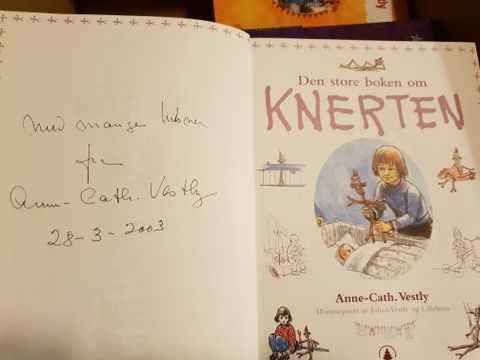 Med mange hilsner
fra
Anne-Cath. Vestly
28-3-2003
Den store boken om
KNERTEN
Anne-Cath. Vestly
Illustrasjoner av Johan Vestly og Lillebror